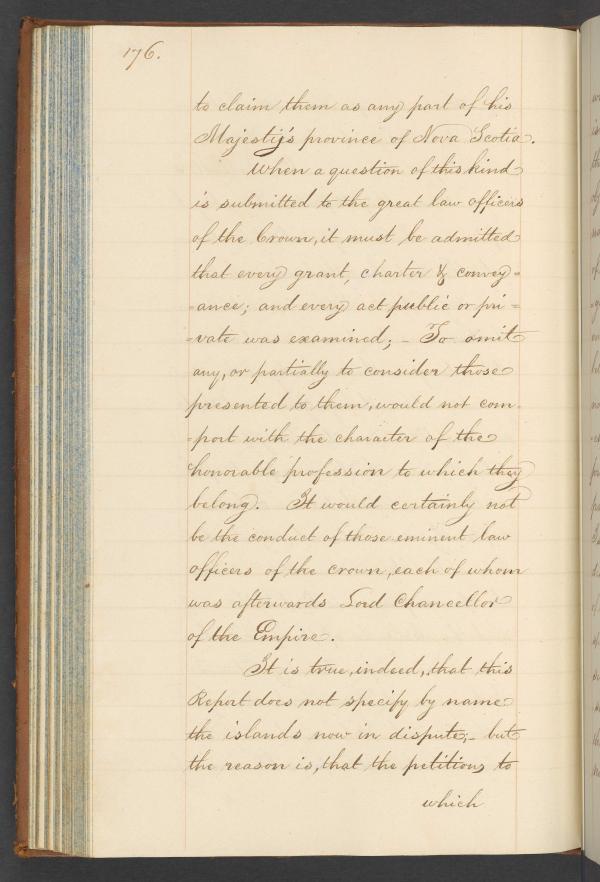 176.
to claim them as any part of his
Majesty's province of Nova Scotia.
When a question of this kind
is submitted to the great law officers
of the Crown, it must be admitted
that every grant, charter & convey=
=ance; and every act public or pri=
=vate was examined; - To omit
any, or partially to consider those
presented to them, would not com-
=port with the character of the
honorable profession to which they
belong. It would certainly not
be the conduct of those eminent law
officers of the crown, each of whom
was afterwards Lord Chancellor
of the Empire.
It is true, indeed, that this
Report does not specify by name
the islands now in dispute;- but
the reason is, that the petitions to
which